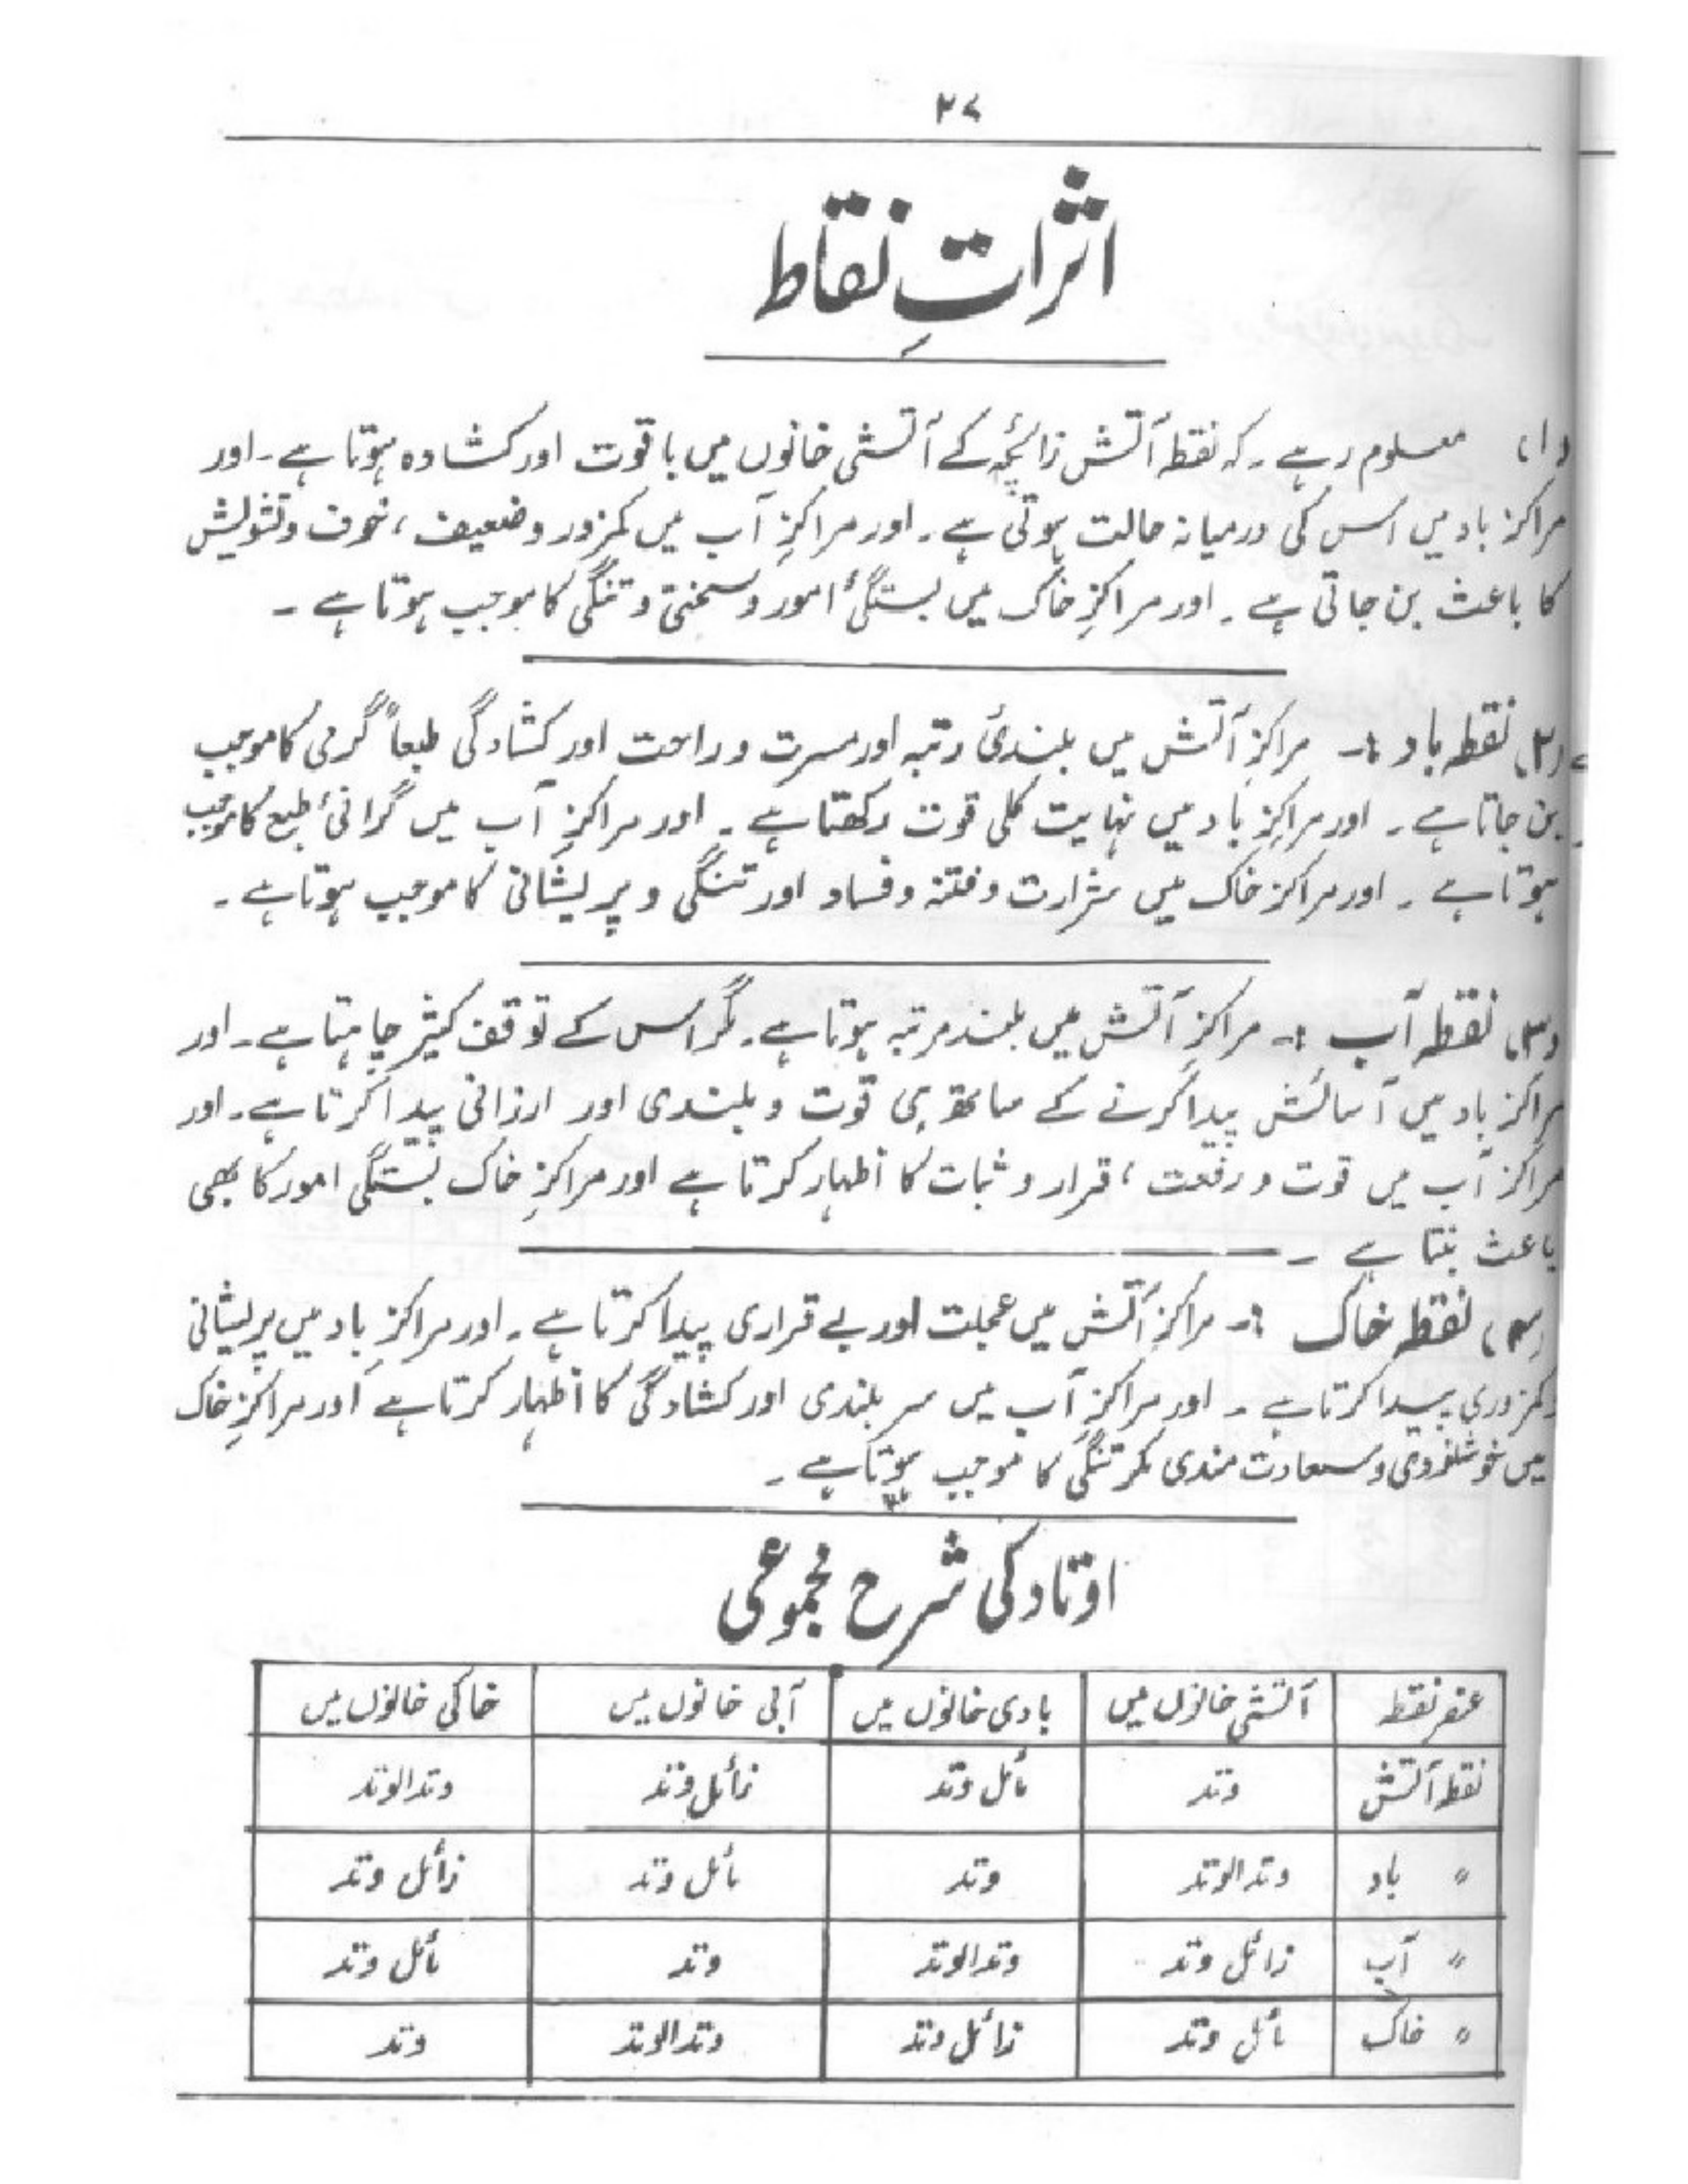 ۲۷
اثراتِ نقاط
(۱) معلوم رہے ۔ کہ نقطہ آتش زائچہ کے آتشی خانوں میں با قوت اور کشادہ ہوتا ہے ۔ اور
مراکز باد میں اس کی درمیانہ حالت ہوتی ہے ۔ اور مراکزِ آب میں کمزور و ضعیف ، خوف و تشویش
کا باعث بن جاتی ہے ۔ اور مراکزِ خاک میں بستگئ امور و سختی و تنگی کا موجب ہوتا ہے ۔
(۲) نقطہ باد :- مراکزِ آتش میں بلندئ رتبہ اور مسرت و راحت اور کشادگی طبعاً گرمی کا موجب
بن جاتا ہے ۔ اور مراکزِ باد میں نہایت کلی قوت رکھتا ہے ۔ اور مراکزِ آب میں گرانئ طبع کا موجب
ہوتا ہے ۔ اور مراکز خاک میں شرارت و فتنہ و فساد اور تنگی و پریشانی کا موجب ہوتا ہے ۔
(۳) نقطہ آب :- مراکزِ آتش میں بلند مرتبہ ہوتا ہے ۔ مگر اس کے توقف کثیر چاہتا ہے ۔ اور
مراکز باد میں آسائش پیدا کرنے کے ساتھ ہی قوت و بلندی اور ارزانی پیدا کرتا ہے ۔ اور
مراکز آب میں قوت و رفعت ، قرار و ثبات کا اظہار کرتا ہے اور مراکزِ خاک بستگی امور کا بھی
باعث بنتا ہے ۔
(۴) نقطہ خاک :- مراکزِ آتش میں عجلت اور بے قراری پیدا کرتا ہے ۔ اور مراکزِ باد میں پریشانی
و کمزوری پیدا کرتا ہے ۔ اور مراکزِ آب میں سر بلندی اور کشادگی کا اظہار کرتا ہے اور مراکزِ خاک
میں خوشنودی و سعادت مندی مگر تنگی کا موجب ہوتا ہے ۔
اوتاد کی شرح مجموعی
عنصر نقطہ آتشی خانوں میں بادی خانوں میں آبی خانوں میں خاکی خانوں میں
نقطہ آتش وتد مائل وتد زائل وتد وتدالوتد
〃 باد وتدالوتد وتد مائل وتد زائل وتد
〃 آب زائل وتد وتدالوتد وتد مائل وتد
〃 خاک مائل وتد زائل وتد وتدالوتد وتد